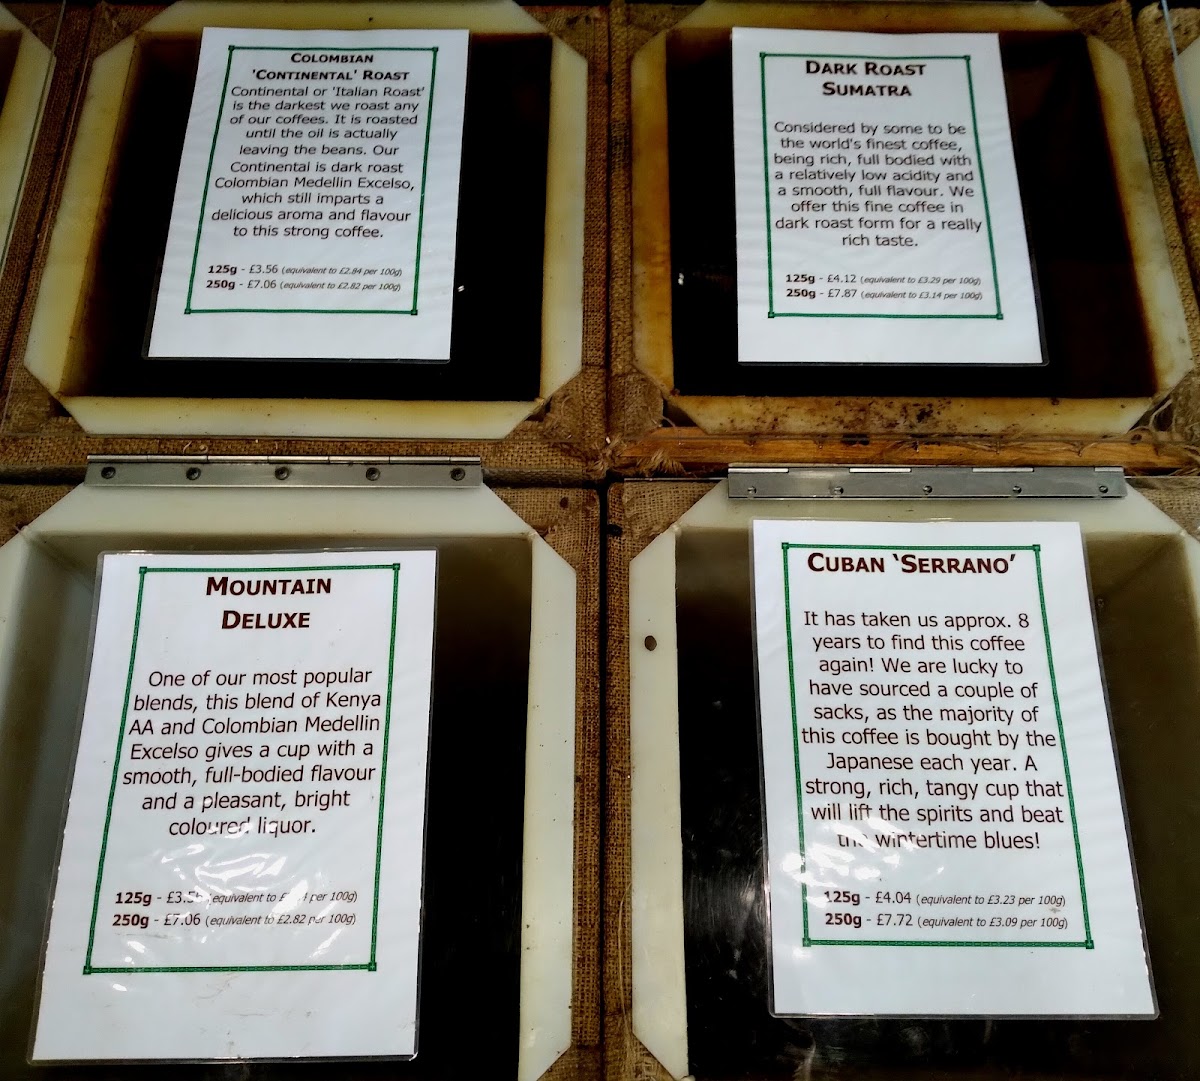 COLOMBIAN
'CONTINENTAL' ROAST
Continental or 'Italian Roast'
is the darkest we roast any
of our coffees. It is roasted
until the oil is actually
leaving the beans. Our
Continental is dark roast
Colombian Medellin Excelso,
which still imparts a
delicious aroma and flavour
to this strong coffee.
125g - £3.56 (equivalent to £2.84 per 100g)
250g - £7.06 (equivalent to £2.82 per 100g)
DARK ROAST
SUMATRA
Considered by some to be
the world's finest coffee,
being rich, full bodied with
a relatively low acidity and
a smooth, full flavour. We
offer this fine coffee in
dark roast form for a really
rich taste.
125g - £4.12 (equivalent to £3.29 per 100g)
250g - £7.87 (equivalent to £3.14 per 100g)
MOUNTAIN
DELUXE
One of our most popular
blends, this blend of Kenya
AA and Colombian Medellin
Excelso gives a cup with a
smooth, full-bodied flavour
and a pleasant, bright
coloured liquor.
125g - (equivalent to per 100g)
250g - £7.06 (equivalent to £2.82 per 100g)
CUBAN 'SERRANO'
It has taken us approx. 8
years to find this coffee
again! We are lucky to
have sourced a couple of
sacks, as the majority of
this coffee is bought by the
Japanese each year. A
strong, rich, tangy cup that
will lift the spirits and beat
the wintertime blues!
125g - £4.04 (equivalent to £3.23 per 100g)
250g - £7.72 (equivalent to £3.09 per 100g)